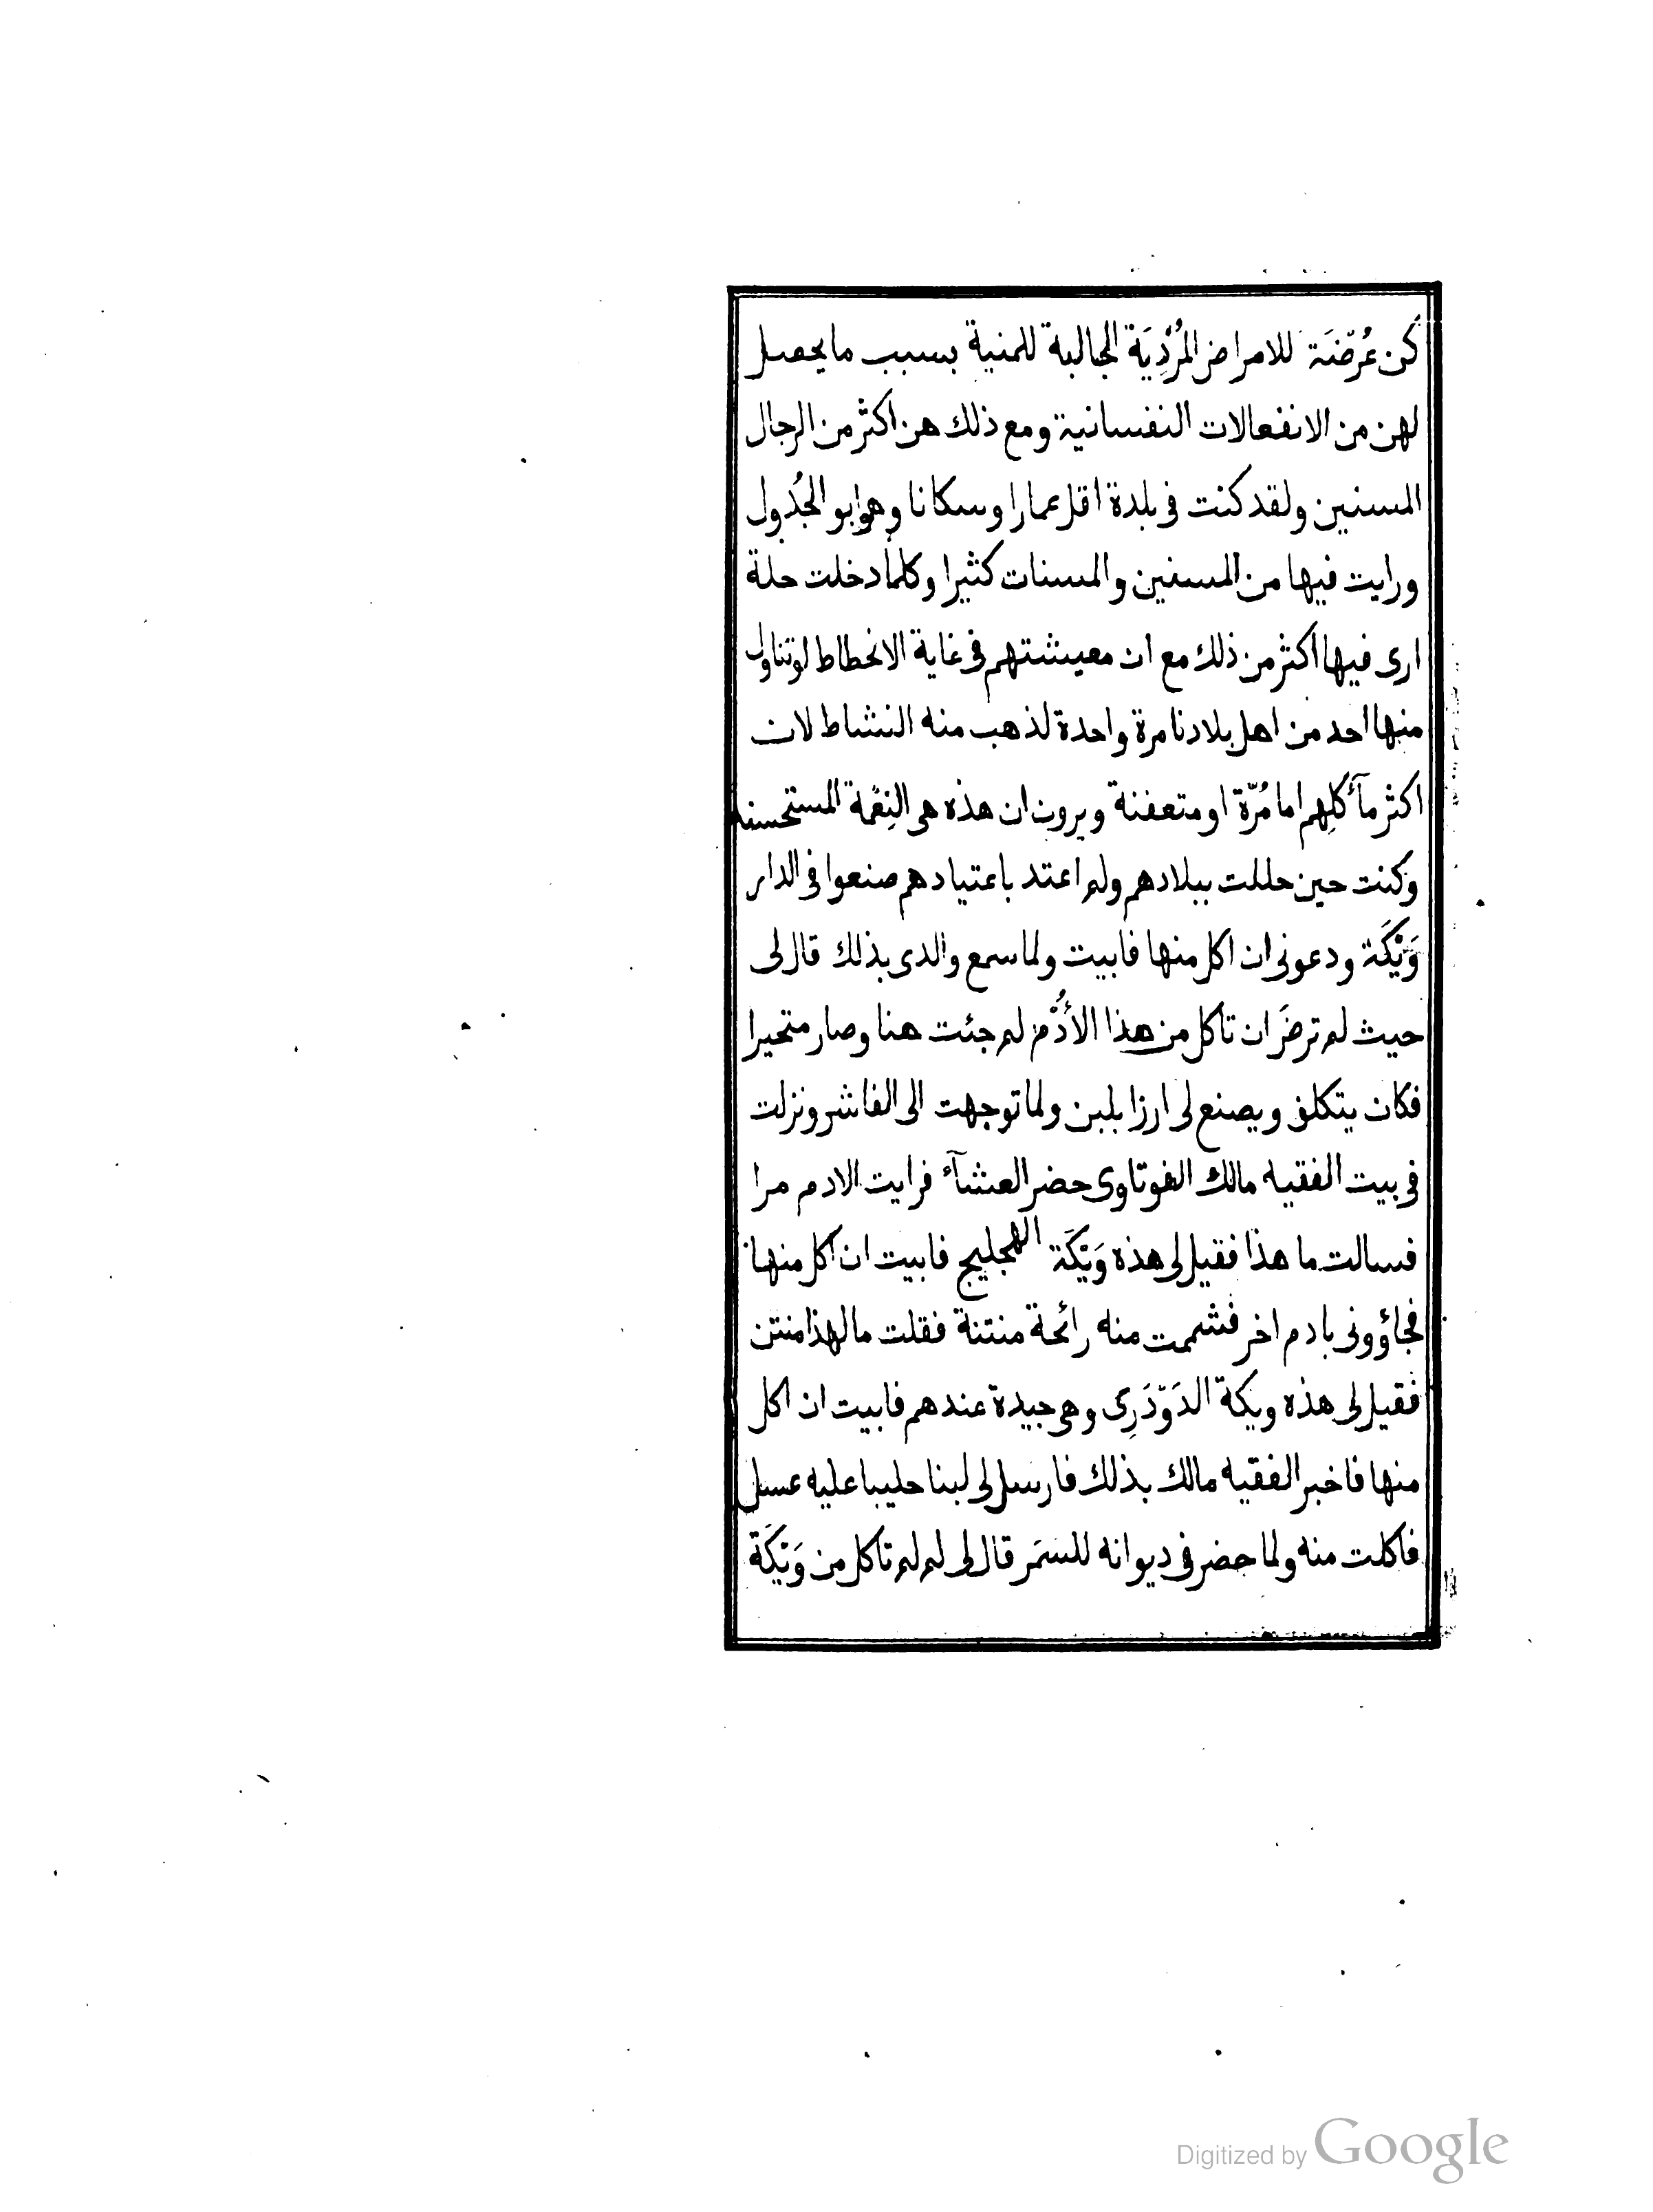 كن عُرّضَة للامراض المُرْدِيَة الجالبة للمنية بسبب ما يحصل
لهن من الانفعالات النفسانية ومع ذلك هن اكثر من الرجال
المسنين ولقد كنت فى بلدة اقل عمارا وسكانا وهو ابو الجُدُول
ورايت فيها من المسنين والمسنات كثيرا وكلما دخلت حلة
ارى فيها اكثر من ذلك مع ان معيشتهم فى غاية الانحطاط لو تناول
منها احد من اهل بلادنا مرة واحدة لذهب منه النشاط لان
اكثر مآكلِهم اما مُرّة او متعفنة ويرون ان هذه هى النِعْمة المستحسنة
وكنت حين حللت ببلادهم ولم اعتد باعتيادهم صنعوا فى الدار
وَيْكَة ودعونى ان اكل منها فابيت ولما سمع والدى بذلك قال لى
حيث لم ترضَ ان تاكل من هذا الأُدُم لم جئت هنا وصار متحيرا
فكان يتكلف ويصنع لى ارزا بلبن ولما توجهت الى الفاشر ونزلت
فى بيت الفقيه مالك الفوتاوى حضر العشآء فرايت الادم مرا
فسالت ما هذا فقيل لى هذه وَيْكَة الهجليج فابيت ان اكل منها
فجاؤونى بادم اخر فشممت منه رائحة منتنة فقلت ما لهذا منتن
فقيل لى هذه ويكة الدَوّدَرِى وهى جيدة عندهم فابيت ان اكل
منها فاخبر الفقيه مالك بذلك فارسل لى لبنا حليبا عليه عسل
فاكلت منه ولما حضر فى ديوانه للسَمَر قال لى لم لم تاكل من وَيْكَة
Digitized by Google